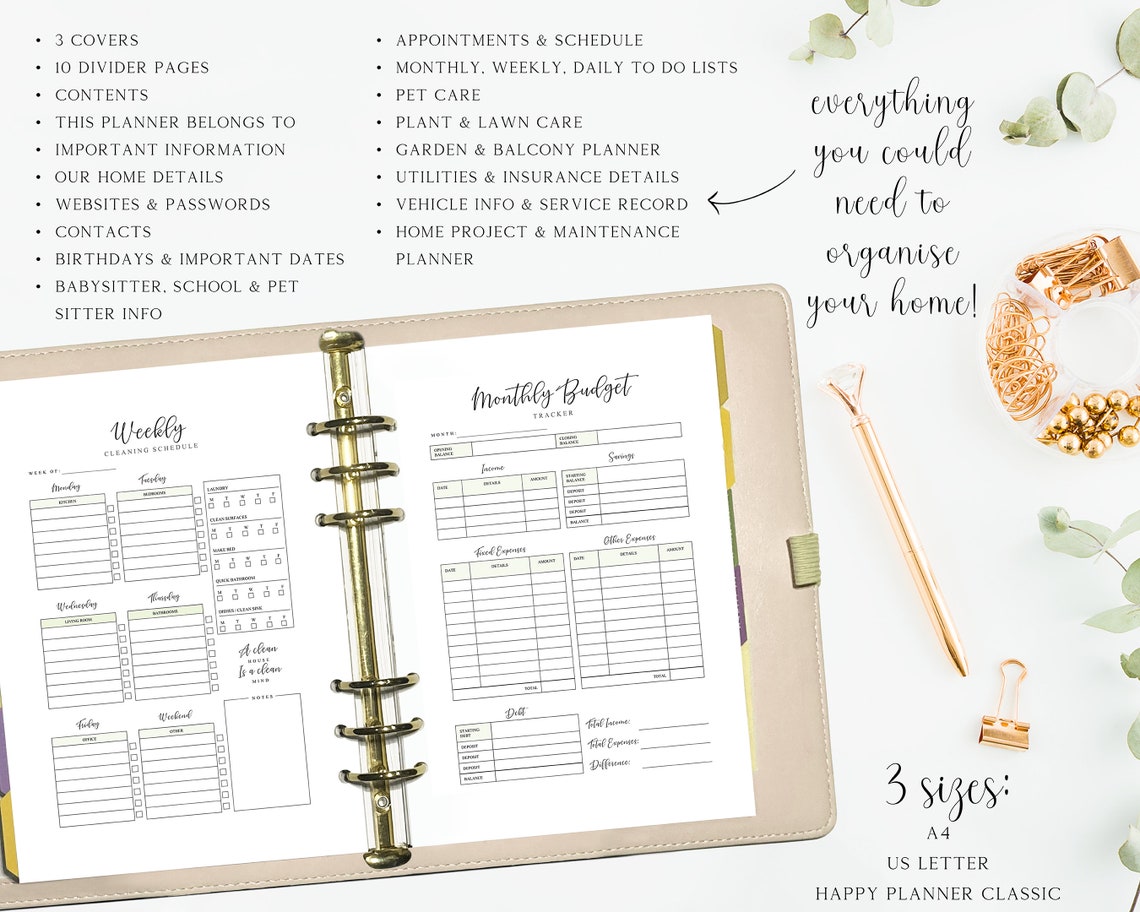 • 3 COVERS
• 10 DIVIDER PAGES
• CONTENTS
• THIS PLANNER BELONGS TO
• IMPORTANT INFORMATION
• OUR HOME DETAILS
• WEBSITES & PASSWORDS
• CONTACTS
• BIRTHDAYS & IMPORTANT DATES
• BABYSITTER, SCHOOL & PET
SITTER INFO
• APPOINTMENTS & SCHEDULE
• MONTHLY, WEEKLY, DAILY TO DO LISTS
• PET CARE
• PLANT & LAWN CARE
• GARDEN & BALCONY PLANNER
• UTILITIES & INSURANCE DETAILS
• VEHICLE INFO & SERVICE RECORD
• HOME PROJECT & MAINTENANCE
PLANNER
everything
you could
need to
organise
your home!
Weekly
CLEANING SCHEDULE
WEEK OF:
Monday
KITCHEN
Tuesday
BEDROOMS
Wednesday
LIVING ROOM
Thursday
BATHROOMS
Friday
OFFICE
Weekend
OTHER
LAUNDRY
M T W T F
CLEAN SURFACES
M T W T F
MAKE BED
M T W T F
QUICK BATHROOM
M T W T F
DISHES / CLEAN SINK
M T W T F
A clean
HOUSE
Is a clean
MIND
NOTES
Monthly Budget
TRACKER
MONTH:
OPENING
BALANCE
CLOSING
BALANCE
Income
DATE DETAILS AMOUNT
Savings
STARTING
BALANCE
DEPOSIT
DEPOSIT
DEPOSIT
BALANCE
Fixed Expenses
DATE DETAILS AMOUNT
TOTAL
Other Expenses
DATE DETAILS AMOUNT
TOTAL
Debt
STARTING
DEBT
DEPOSIT
DEPOSIT
DEPOSIT
BALANCE
Total Income:
Total Expenses:
Difference:
3 sizes:
A4
US LETTER
HAPPY PLANNER CLASSIC